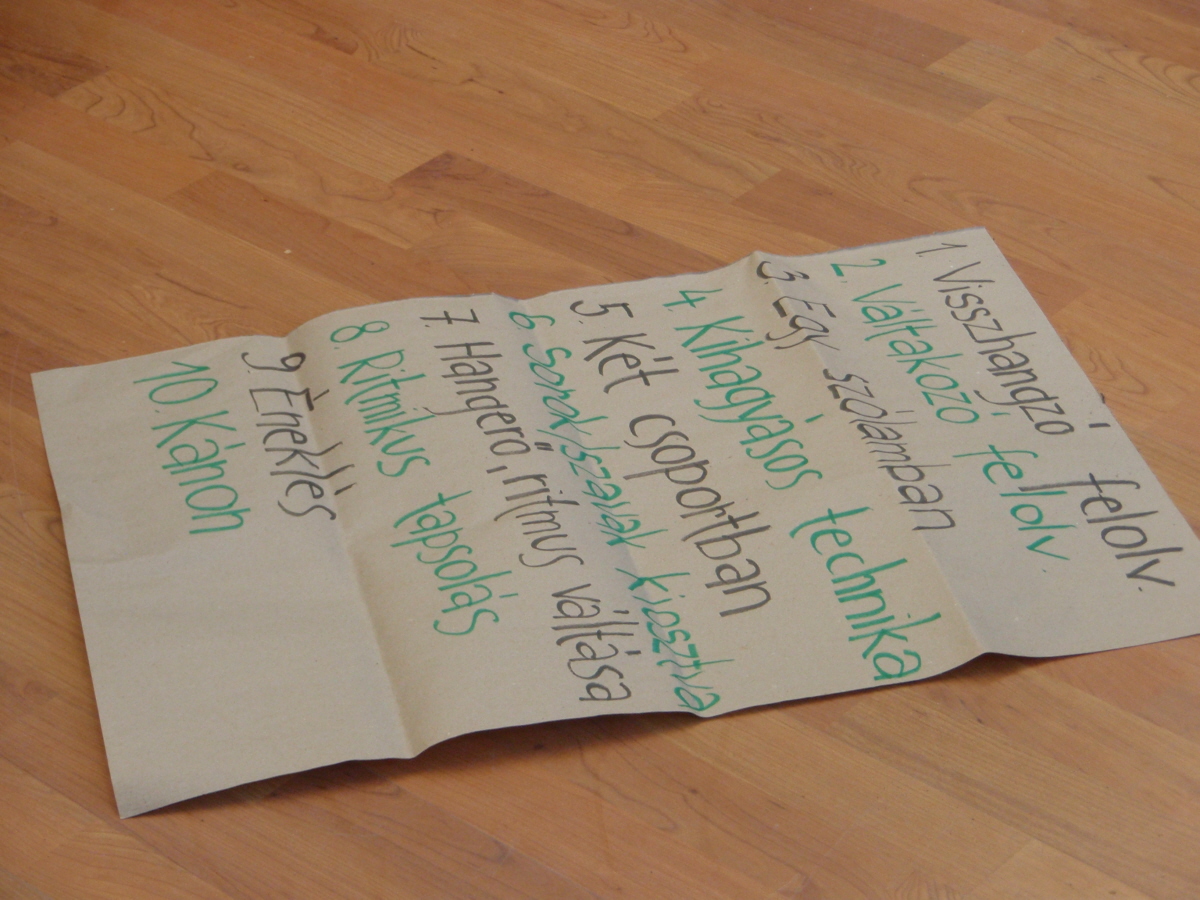 1. Visszhangzó felolv.
2. Váltakozó felolv.
3. Egy szólamban
4. Kihagyásos technika
5. Két csoportban
6 Sorok/szavak kiosztva
7. Hangerő, ritmus váltása
8. Ritmikus tapsolás
9. Éneklés
10. Kánon